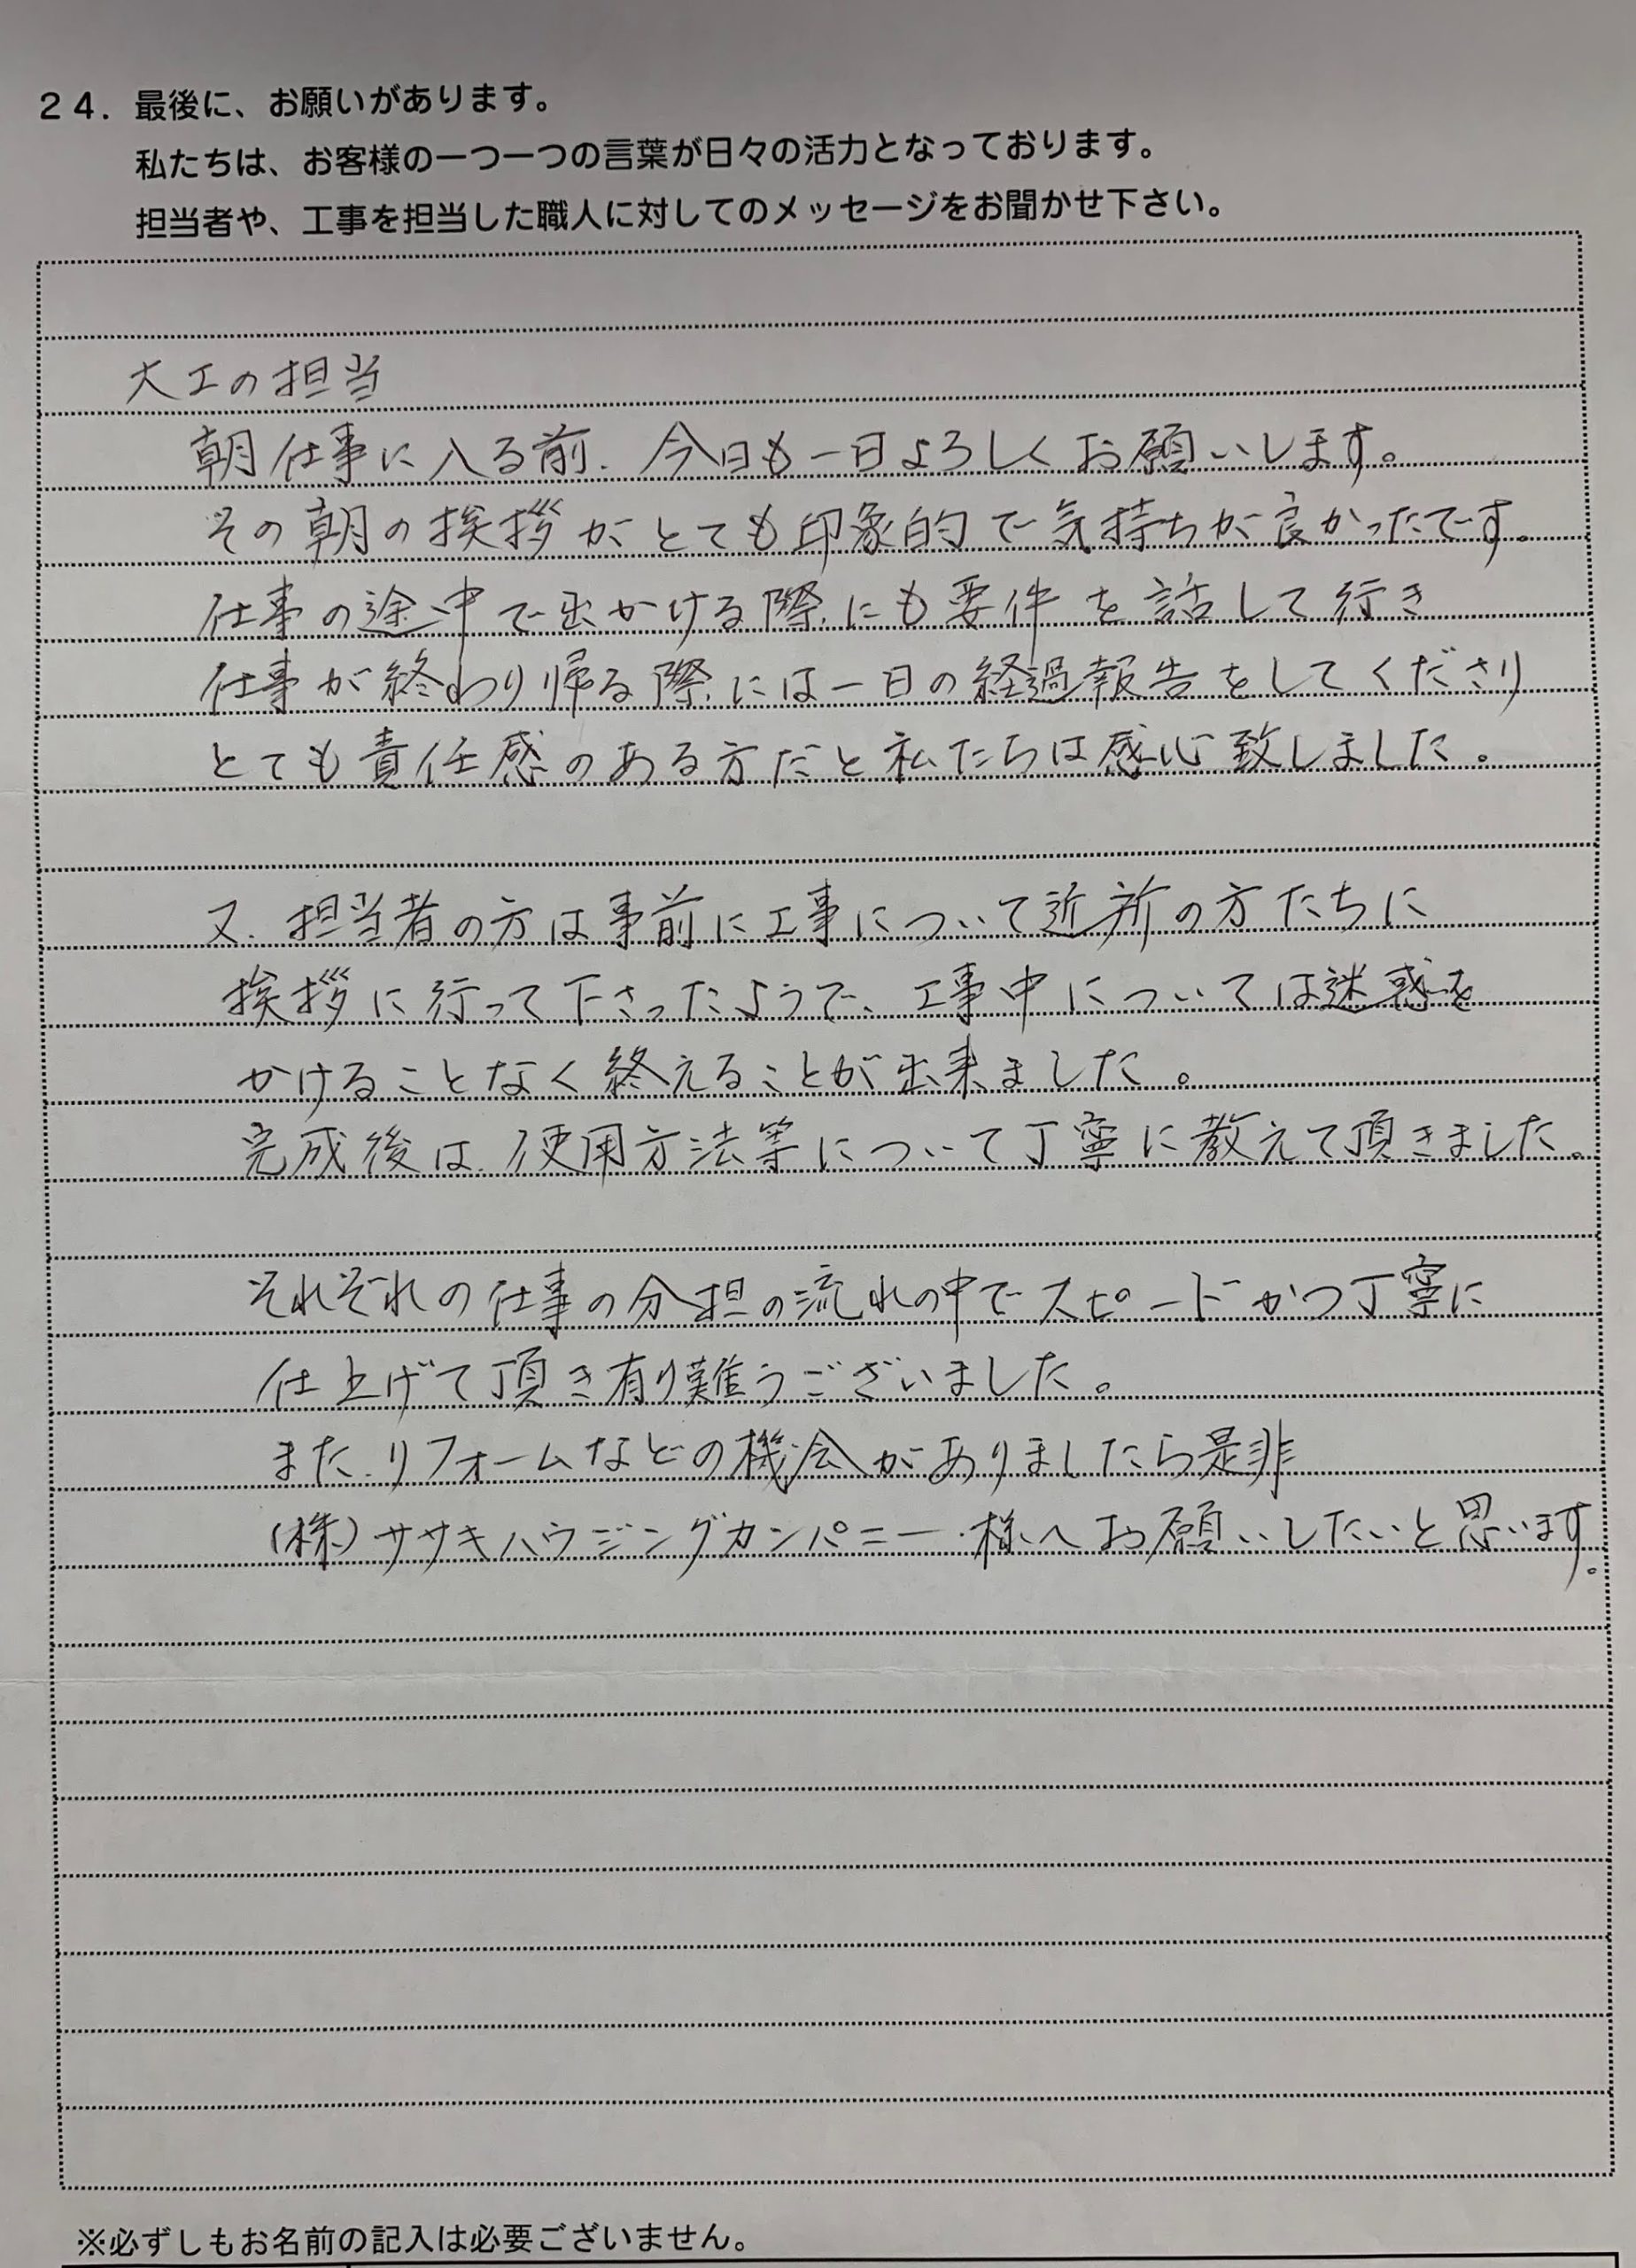 ２４．最後に、お願いがあります。
私たちは、お客様の一つ一つの言葉が日々の活力となっております。
担当者や、工事を担当した職人に対してのメッセージをお聞かせ下さい。
大工の担当
朝仕事に入る前、今日も一日よろしくお願いします。
その朝の挨拶がとても印象的で気持ちが良かったです。
仕事の途中で出かける際にも要件を話して行き
仕事が終わり帰る際には一日の経過報告をしてくださり
とても責任感のある方だと私たちは感心致しました。
又、担当者の方は事前に工事について近所の方たちに
挨拶に行って下さったようで、工事中については迷惑を
かけることなく終えることが出来ました。
完成後は、使用方法等について丁寧に教えて頂きました。
それぞれの仕事の分担の流れの中でスピードかつ丁寧に
仕上げて頂き有り難うございました。
また、リフォームなどの機会がありましたら是非
(株)ササキハウジングカンパニー様へお願いしたいと思います。
※必ずしもお名前の記入は必要ございません。